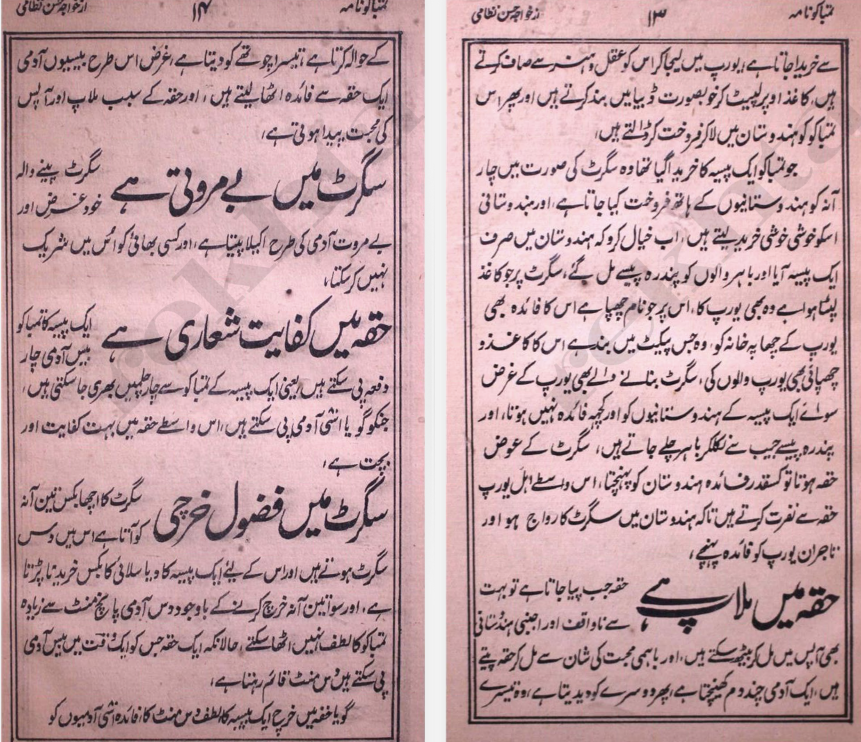 تمباکو نامہ ۱۳ از خواجہ حسن نظامی
سے خریدا جاتا ہے، یورپ میں لیجا کر اس کو عقل و ہنر سے صاف کرتے
ہیں، کاغذ اوپر لپیٹ کر خوبصورت ڈبیا میں بند کرتے ہیں اور پھر اس
تمباکو کو ہندوستان میں لا کر فروخت کر ڈالتے ہیں،
جو تمباکو ایک پیسہ کا خریدا گیا تھا وہ سگرٹ کی صورت میں چار
آنہ کو ہندوستانیوں کے ہاتھ فروخت کیا جاتا ہے، اور ہندوستانی
اسکو خوشی خوشی خرید لیتے ہیں، اب خیال کرو کہ ہندوستان میں صرف
ایک پیسہ آیا اور باہر والوں کو پندرہ پیسے مل گئے، سگرٹ پر جو کاغذ
لپٹا ہوا ہے وہ بھی یورپ کا، اس پر جو نام چھپا ہے اس کا فائدہ بھی
یورپ کے چھاپہ خانہ کو، وہ جس پیکٹ میں بند ہے اس کا کاغذ و
چھپائی بھی یورپ والوں کی، سگرٹ بنانے والے بھی یورپ کے غرض
سوائے ایک پیسہ کے ہندوستانیوں کو اور کچھ فائدہ نہیں ہوتا، اور
پندرہ پیسے جیب سے نکلکر باہر چلے جاتے ہیں، سگرٹ کے عوض
حقہ ہوتا تو کسقدر فائدہ ہندوستان کو پہنچتا، اس واسطے اہل یورپ
حقہ سے نفرت کرتے ہیں تاکہ ہندوستان میں سگرٹ کا رواج ہو اور
تاجران یورپ کو فائدہ پہنچے،
حقہ میں ملاپ ہے حقہ جب پیا جاتا ہے تو بہت
سے ناواقف اور اجنبی ہندوستانی
بھی آپس میں مل کر بیٹھ سکتے ہیں، اور باہمی محبت کی شان سے مل کر حقہ پیتے
ہیں، ایک آدمی چند دم کھینچتا ہے، پھر دوسرے کو دیدیتا ہے، وہ تیسرے
تمباکو نامہ ۱۴ از خواجہ حسن نظامی
کے حوالہ کرتا ہے، تیسرا چوتھے کو دیتا ہے، غرض اس طرح بیسیوں آدمی
ایک حقہ سے فائدہ اٹھا لیتے ہیں، اور حقہ کے سبب ملاپ اور آپس
کی محبت پیدا ہوتی ہے،
سگرٹ میں بے مروتی ہے سگرٹ پینے والہ
خود غرض اور
بے مروت آدمی کی طرح اکیلا پیتا ہے، اور کسی بھائی کو اس میں شریک
نہیں کر سکتا،
حقہ میں کفایت شعاری ہے ایک پیسہ کا تمباکو
بیس آدمی چار
دفعہ پی سکتے ہیں یعنی ایک پیسہ کے تمباکو سے چار چلمیں بھری جا سکتی ہیں،
جنکو گویا اسّی آدمی پی سکتے ہیں، اس واسطے حقہ میں بہت کفایت اور
بچت ہے،
سگرٹ میں فضول خرچی سگرٹ کا اچھا بکس تین آنہ
کو آتا ہے اس میں دس
سگرٹ ہوتے ہیں اور اس کے لیئے ایک پیسہ کا دیا سلائی کا بکس خریدنا پڑتا
ہے، اور سوا تین آنہ خرچ کرنے کے باوجود دس آدمی پانچ منٹ سے زیادہ
تمباکو کا لطف نہیں اٹھا سکتے، حالانکہ ایک حقہ جس کو ایک وقت میں بیس آدمی
پی سکتے ہیں دس منٹ قائم رہتا ہے،
گویا حقہ میں خرچ ایک پیسہ کا، لطف دس منٹ کا، فائدہ اسّی آدمیوں کو
rekhta
rekhta